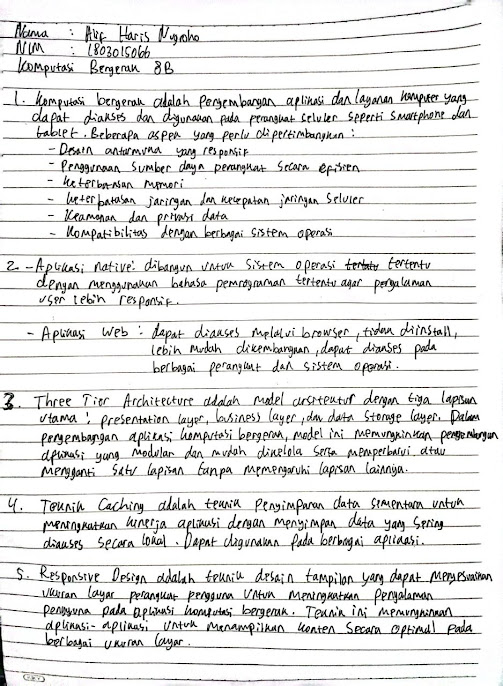 Nama : Alif Haris Nugroho
NIM : 1803015066
Komputasi Bergerak 8B
1. Komputasi bergerak adalah pengembangan aplikasi dan layanan komputer yang
dapat diakses dan digunakan pada perangkat seluler seperti smartphone dan
tablet. Beberapa aspek yang perlu dipertimbangkan :
- Desain antarmuka yang responsif
- Penggunaan sumber daya perangkat secara efisien
- Keterbatasan memori
- Keterbatasan jaringan dan kecepatan jaringan seluler
- Keamanan dan privasi data
- Kompatibilitas dengan berbagai sistem operasi
2. - Aplikasi native : dibangun untuk sistem operasi tertentu
dengan menggunakan bahasa pemrograman tertentu agar pengalaman
user lebih responsif.
- Aplikasi Web : dapat diakses melalui browser, tidak diinstall,
lebih mudah dikembangkan, dapat diakses pada
berbagai perangkat dan sistem operasi.
3. Three Tier Architecture adalah model arsitektur dengan tiga lapisan
utama : presentation layer, business layer, dan data storage layer. Dalam
pengembangan aplikasi komputasi bergerak, model ini memungkinkan pengembangan
aplikasi yang modular dan mudah dikelola serta memperbarui atau
mengganti satu lapisan tanpa memengaruhi lapisan lainnya.
4. Teknik Caching adalah teknik penyimpanan data sementara untuk
meningkatkan kinerja aplikasi dengan menyimpan data yang sering
diakses secara lokal. Dapat digunakan pada berbagai aplikasi.
5. Responsive Design adalah teknik desain tampilan yang dapat menyesuaikan
ukuran layar perangkat pengguna untuk meningkatkan pengalaman
pengguna pada aplikasi komputasi bergerak. Teknik ini memungkinkan
aplikasi-aplikasi untuk menampilkan konten secara optimal pada
berbagai ukuran layar.